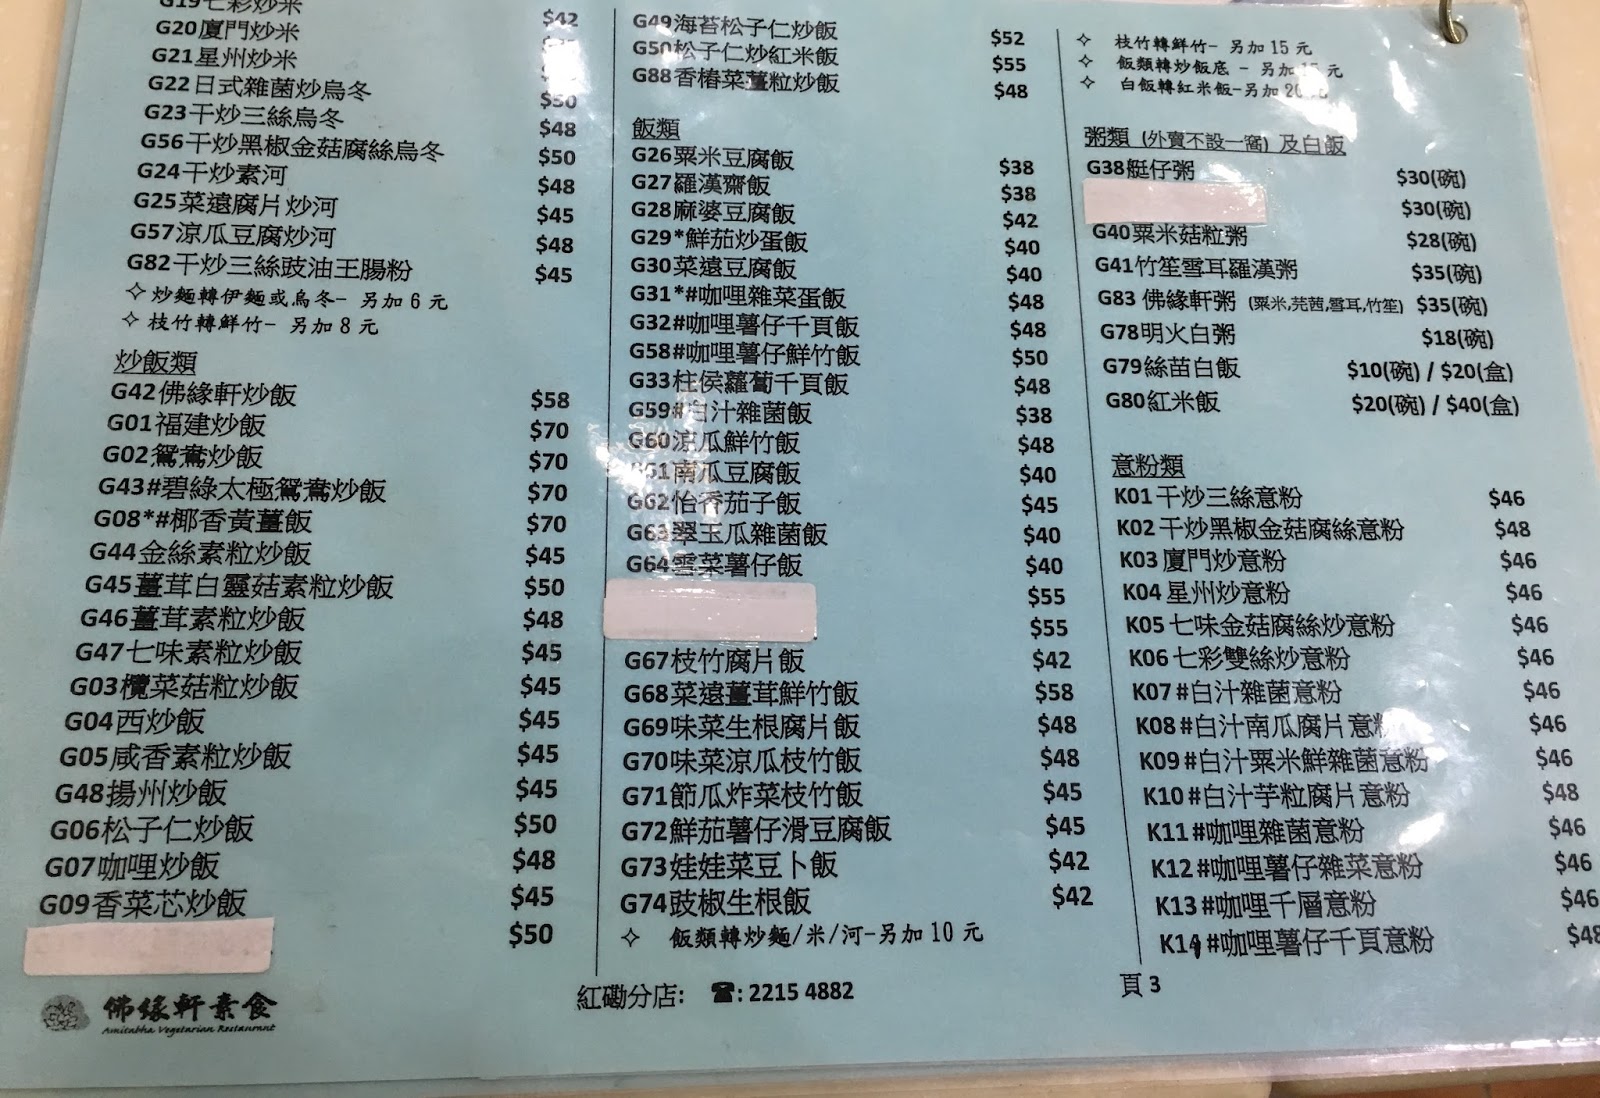 G19七彩炒米 $42
G20廈門炒米
G21星州炒米
G22日式雜菌炒烏冬 $50
G23干炒三絲烏冬 $48
G56干炒黑椒金菇腐絲烏冬 $50
G24干炒素河 $48
G25菜遠腐片炒河 $45
G57涼瓜豆腐炒河 $48
G82干炒三絲豉油王腸粉 $45
✧ 炒麵轉伊麵或烏冬- 另加 6 元
✧ 枝竹轉鮮竹- 另加 8 元
炒飯類
G42佛緣軒炒飯 $58
G01福建炒飯 $70
G02鴛鴦炒飯 $70
G43#碧綠太極鴛鴦炒飯 $70
G08*#椰香黃薑飯 $70
G44金絲素粒炒飯 $45
G45薑茸白靈菇素粒炒飯 $50
G46薑茸素粒炒飯 $48
G47七味素粒炒飯 $45
G03欖菜菇粒炒飯 $45
G04西炒飯 $45
G05咸香素粒炒飯 $45
G48揚州炒飯 $45
G06松子仁炒飯 $50
G07咖哩炒飯 $48
G09香菜芯炒飯 $45
$50
佛緣軒素食
Amitabha Vegetarian Restaurant
G49海苔松子仁炒飯 $52
G50松子仁炒紅米飯 $55
G88香椿菜薑粒炒飯 $48
飯類
G26粟米豆腐飯 $38
G27羅漢齋飯 $38
G28麻婆豆腐飯 $42
G29*鮮茄炒蛋飯 $40
G30菜遠豆腐飯 $40
G31*#咖哩雜菜蛋飯 $48
G32#咖哩薯仔千頁飯 $48
G58#咖哩薯仔鮮竹飯 $50
G33柱侯蘿蔔千頁飯 $48
G59#白汁雜菌飯 $38
G60涼瓜鮮竹飯 $48
G61南瓜豆腐飯 $40
G62怡香茄子飯 $45
G63翠玉瓜雜菌飯 $40
G64雪菜薯仔飯 $40
$55
$55
G67枝竹腐片飯 $42
G68菜遠薑茸鮮竹飯 $58
G69味菜生根腐片飯 $48
G70味菜涼瓜枝竹飯 $48
G71節瓜炸菜枝竹飯 $45
G72鮮茄薯仔滑豆腐飯 $45
G73娃娃菜豆卜飯 $42
G74豉椒生根飯 $42
✧ 飯類轉炒麵/米/河-另加 10 元
紅磡分店: ☎: 2215 4882
✧ 枝竹轉鮮竹- 另加 15 元
✧ 飯類轉炒飯底 - 另加 15 元
✧ 白飯轉紅米飯-另加 20 元
粥類 (外賣不設一窩) 及白飯
G38艇仔粥 $30(碗)
$30(碗)
G40粟米菇粒粥 $28(碗)
G41竹笙雪耳羅漢粥 $35(碗)
G83 佛緣軒粥 (粟米,芫茜,雪耳,竹笙) $35(碗)
G78明火白粥 $18(碗)
G79絲苗白飯 $10(碗) / $20(盒)
G80紅米飯 $20(碗) / $40(盒)
意粉類
K01干炒三絲意粉 $46
K02干炒黑椒金菇腐絲意粉 $48
K03廈門炒意粉 $46
K04星州炒意粉 $46
K05七味金菇腐絲炒意粉 $46
K06七彩雙絲炒意粉 $46
K07#白汁雜菌意粉 $46
K08#白汁南瓜腐片意粉 $46
K09#白汁粟米鮮雜菌意粉 $46
K10#白汁芋粒腐片意粉 $48
K11#咖哩雜菌意粉 $46
K12#咖哩薯仔雜菜意粉 $46
K13#咖哩千層意粉 $46
K14#咖哩薯仔千頁意粉 $48
頁 3